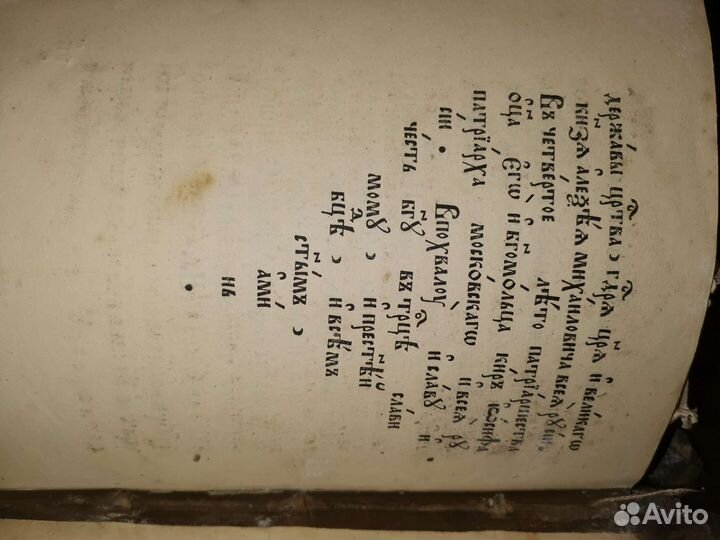 держа́вы црⷭ҇тва , гдⷭ҇рѧ цр҃ѧ и҆ вели́кагѡ
кн҃зѧ алеѯѣ́ѧ миха́иловича всеѧ̀ рꙋсі́и .
Въ четве́ртое лѣ́то патрїа́ршества
ѻ҆ц҃а̀ є҆гѡ̀ и҆ бг҃омо́льца ки́ръ і҆ѡ́сифа
патрїа́рха моско́вскагѡ и҆ всеѧ̀ рꙋ
сі́и . Впохвалꙋ̀ и҆ сла́вꙋ и҆
че́сть бг҃ꙋ въ трⷪ҇цѣ сла́ви
момꙋ , и҆ прест҃ѣ́й
вⷣцѣ , и҆ всѣ́мъ
ст҃ы́мъ ,
а҆ми́
нь
Avito